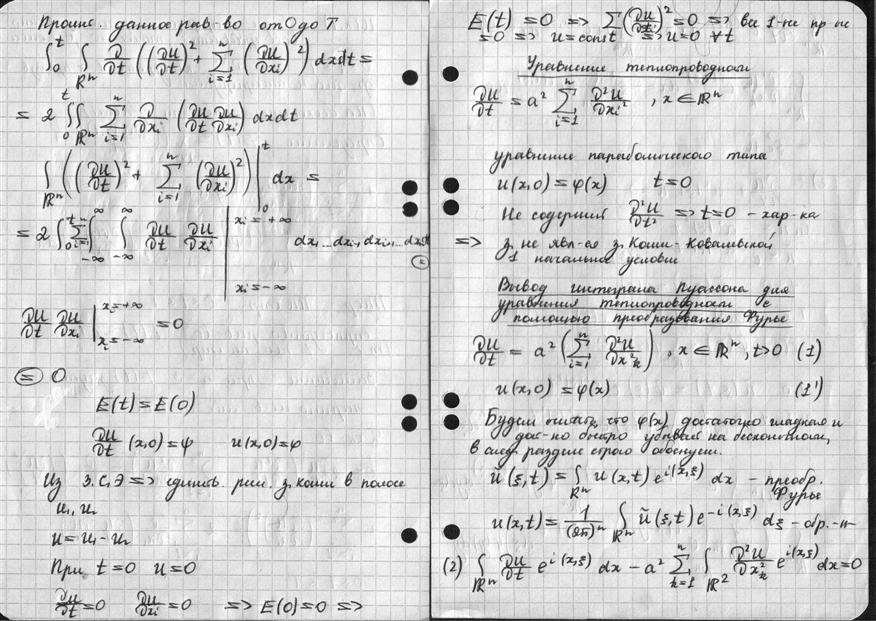 Проинт. данное рав-во от 0 до T
∫_0^t ∫_{R^n} ∂/∂t ((∂u/∂t)^2 + Σ_{i=1}^n (∂u/∂x_i)^2) dxdt =
= 2 ∫_0^t ∫_{R^n} Σ_{i=1}^n ∂/∂x_i (∂u/∂t ∂u/∂x_i) dxdt
∫_{R^n} ((∂u/∂t)^2 + Σ_{i=1}^n (∂u/∂x_i)^2) |_0^t dx =
= 2 ∫_0^t Σ_{i=1}^n ∫_{-∞}^∞ ∫_{-∞}^∞ ∂u/∂t ∂u/∂x_i |_{x_i=-∞}^{x_i=+∞} dx_1...dx_{i-1}dx_{i+1}...dx_n dt
(=)
∂u/∂t ∂u/∂x_i |_{x_i=-∞}^{x_i=+∞} = 0
(=) 0
E(t) = E(0)
∂u/∂t (x,0) = ψ u(x,0) = φ
Из З.С.Э => единств. реш. з. коши в полосе
u_1, u_2
u = u_1 - u_2
При t=0 u=0
∂u/∂t = 0 ∂u/∂x_i = 0 => E(0) = 0 =>
E(t) = 0 => Σ(∂u/∂x_i)^2 = 0 => все 1-ые пр-ые
= 0 => u = const => u = 0 ∀t
Уравнение теплопроводности
∂u/∂t = a^2 Σ_{i=1}^n ∂^2u/∂x_i^2 , x ∈ R^n
уравнение параболического типа
u(x,0) = φ(x) t=0
Не содержит ∂^2u/∂t^2 => t=0 - хар-ка
=> з. не явл-ся з. Коши-Ковалевской
1 начальное условие
Вывод интеграла Пуассона для
уравнения теплопроводности с
помощью преобразования Фурье
∂u/∂t = a^2 (Σ_{i=1}^n ∂^2u/∂x_k^2) , x ∈ R^n, t>0 (1)
u(x,0) = φ(x) (1')
Будем считать, что φ(x) достаточно гладкая и
дос-но быстро убывает на бесконечности,
в след. разделе строго обоснуем.
ũ(ξ,t) = ∫_{R^n} u(x,t) e^{i(x,ξ)} dx - преобр.
Фурье
u(x,t) = 1/(2π)^n ∫_{R^n} ũ(ξ,t) e^{-i(x,ξ)} dξ - обр.
(2) ∫_{R^n} ∂u/∂t e^{i(x,ξ)} dx - a^2 Σ_{k=1}^n ∫_{R^2} ∂^2u/∂x_k^2 e^{i(x,ξ)} dx = 0